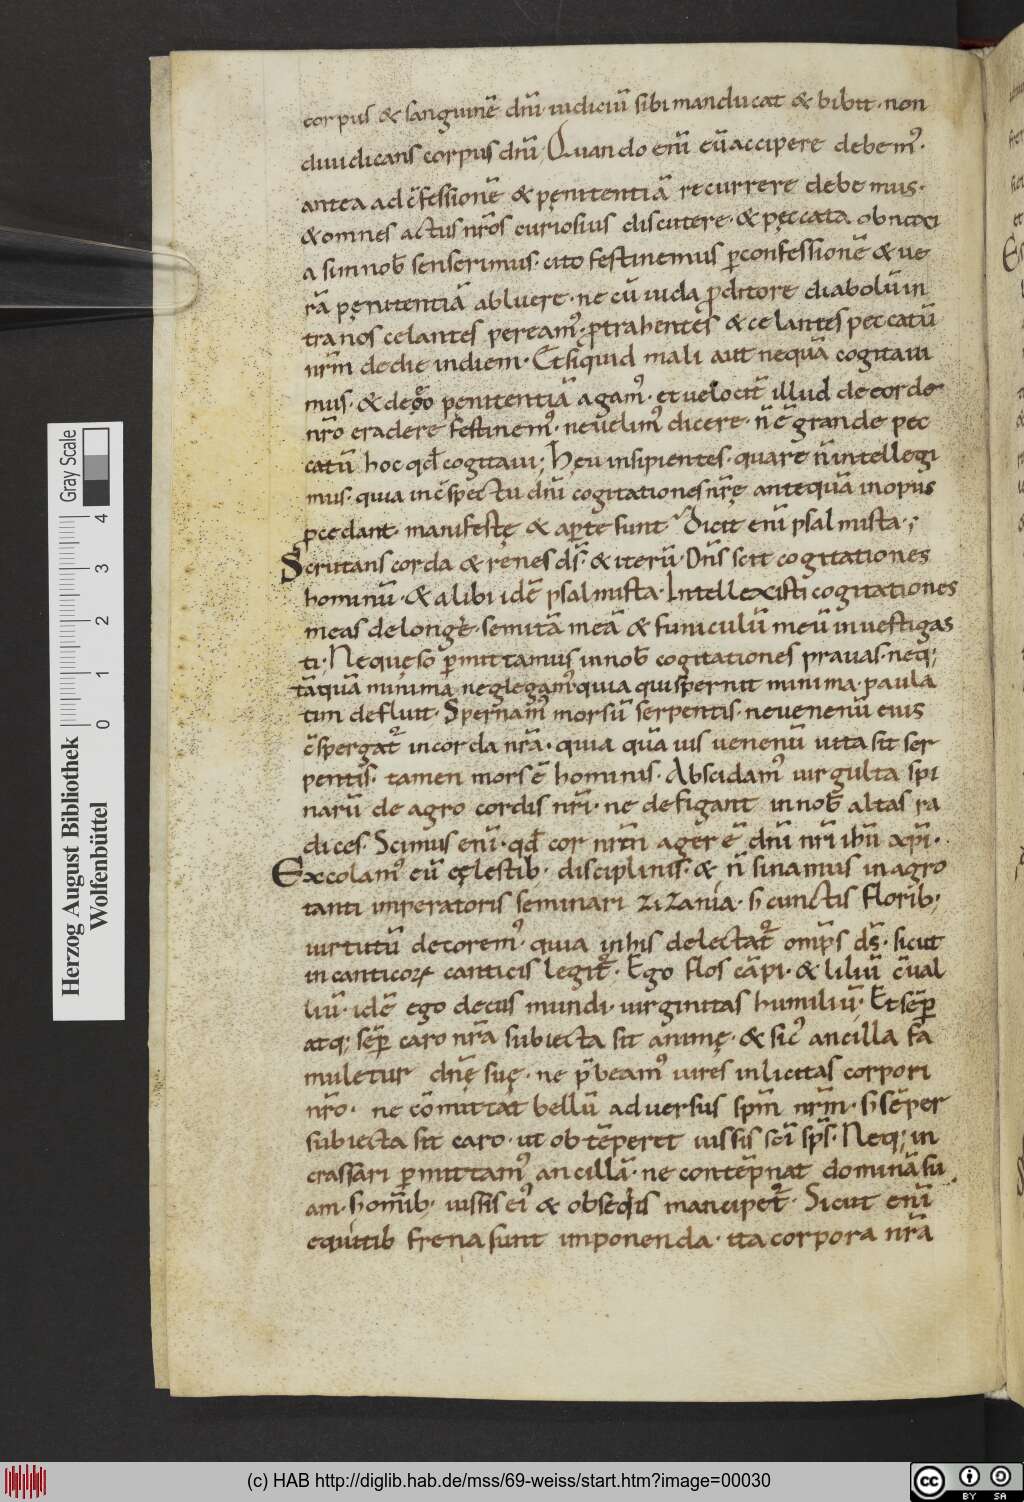 corpus & sanguinē dn̄i iudiciū sibi manducat & bibit · non
diiudicans corpus dn̄i; Quando enī eū accipere debem᾽ ·
antea ad cfessionē & pęnitentiā recurrere debemus ·
& omnes actus nr̄os curiosius discutere · & peccata obnoxi
a si in nob̄ senserimus · cito festinemus p̄confessionē & ue
rā pęnitentiā abluere · ne cū iuda p̄ditore diabolū in
tra nos celantes peream᾽ · p̄trahentes & celantes peccatū
nr̄m de die in diem · Et siquid mali aut nequā cogitaui
mus · & de eo pęnitentiā agam᾽ · et uelocit̄ illud de corde
nr̄o eradere festinem᾽ · neuelim᾽ dicere · n̄ ē grande pec
catū hoc qd̄ cogitaui; Heu insipientes · quare n̄ intellegi
mus · quia in c̄spectu dn̄i cogitationes nr̄ę antequā in opus
p̄cedant · manifestę & ap̄te sunt · Dicit enī psalmista ·;
Scrutans corda & renes ds̄ · & iterū · Dn̄s scit cogitationes
hominū · & alibi idē psalmista · Intellexisti cogitationes
meas de longe · semitā meā & funiculū meū inuestigas
ti · Neque so p̄mittamus in nob̄ cogitationes prauas · neq;
tāquā minima neglegam᾽ quia qui spernit minima · paula
tim defluit · Spernam᾽ morsū serpentis · ne uenenū eius
c̄spergat᾽ in corda nr̄a · quia quāuis uenenū uita sit ser
pentis · tamen mors ē hominis · Abscidam᾽ uirgulta spi
narū de agro cordis nr̄i · ne defigant in nob̄ altas ra
dices · Scimus enī · qd̄ cor nr̄m ager ē dn̄i nr̄i ihū xp̄i ·
Excolam᾽ eū cęlestib; disciplinis · & n̄ sinamus in agro
tanti imperatoris seminari zizania · s; cunctis florib;
uirtutū decorem᾽ · quia in his delectat᾽ omp̄s ds̄ · sicut
in canticorꝝ canticis legit᾽ · Ego flos cāpi · & liliū c̄ual
liū · idē ego decus mundi · uirginitas humiliū · Et sēp̄
atq; sēp̄ caro nr̄a subiecta sit animę · & sic᾽ ancilla fa
muletur dn̄ę suę · ne p̄beam᾽ uires inlicitas corpori
nr̄o · ne cōmittat bellū aduersus sp̄m nr̄m · s; sēper
subiecta sit caro · ut obtēperet iussis sc̄i sp̄s · Neq; in
crassari p̄mittam᾽ ancillā · ne contēpnat dominā su
am · s; omīb; iussis ei᾽ & obseqiis mancipet᾽ · Sicut enī
equitib; frena sunt imponenda · ita corpora nr̄a
Herzog August Bibliothek
Wolfenbüttel
0 1 2 3 4
Gray Scale
(c) HAB http://diglib.hab.de/mss/69-weiss/start.htm?image=00030
cc BY SA